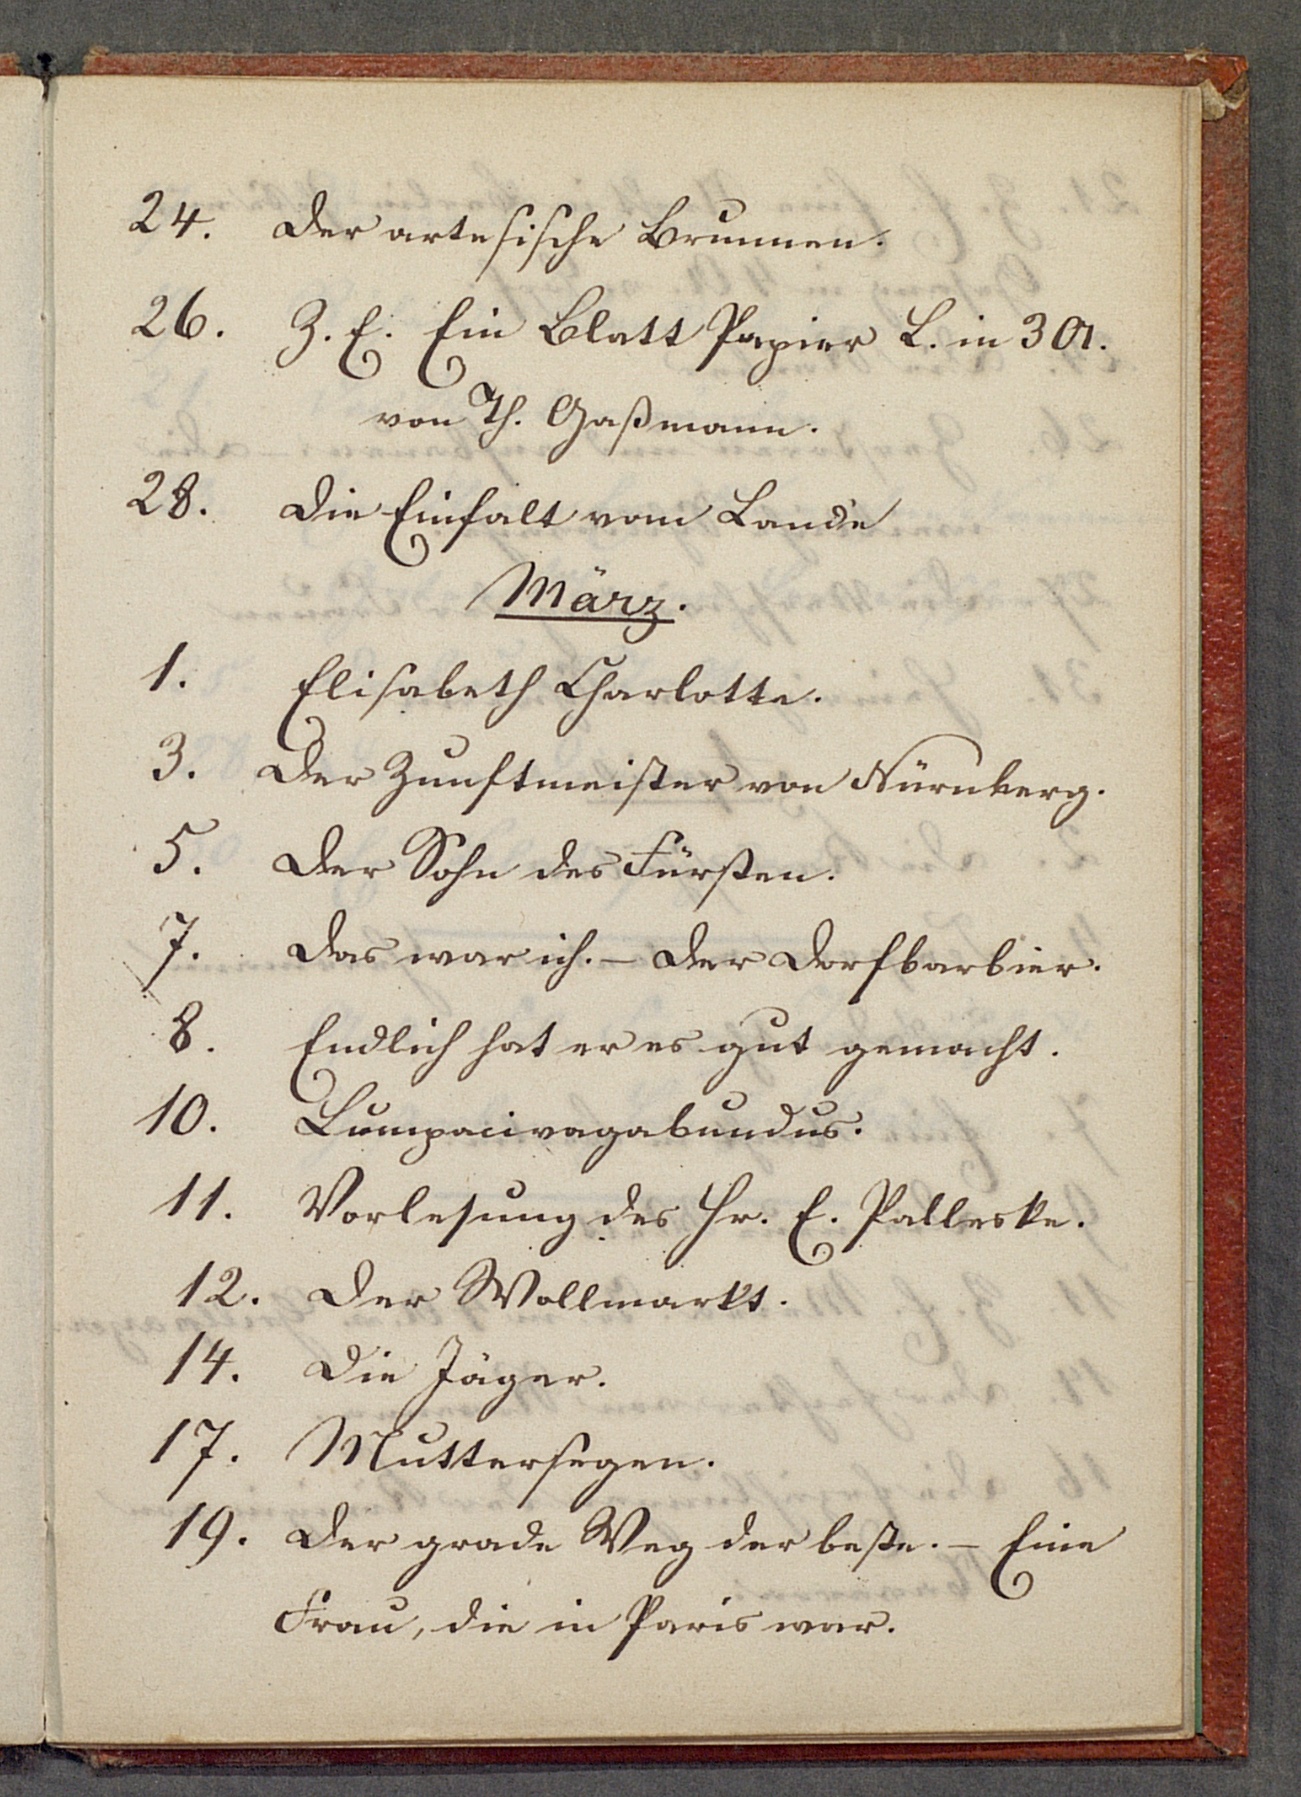 24. Der artesische Brunnen.
26. Z. E. Ein Blatt Papier L. in 3 A.
von Th. Gaßmann.
28. Die Einfalt vom Lande
März.
1. Elisabeth Charlotte.
3. Der Zunftmeister von Nürnberg.
5. Der Sohn des Fürsten.
7. Das war ich. – Der Dorfbarbier.
8. Endlich hat er es gut gemacht.
10. Lumpacivagabundus.
11. Vorlesung des Hr. E. Palleske.
12. Der Wollmarkt.
14. Die Jäger.
17. Muttersegen.
19. Der grade Weg der beste. – Eine
Frau, die in Paris war.